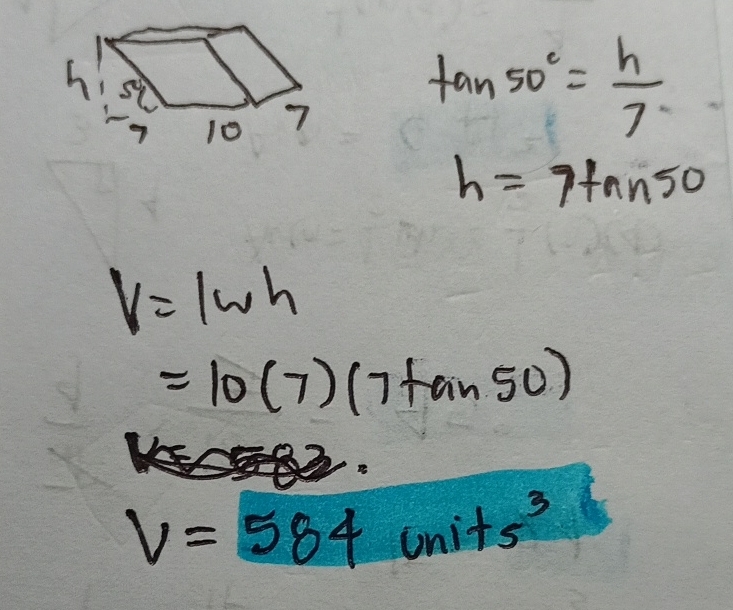 h 50°
7 10 7
tan 50° = h/7
h = 7tan50
V = lwh
= 10(7)(7tan 50)
V = 584 units³